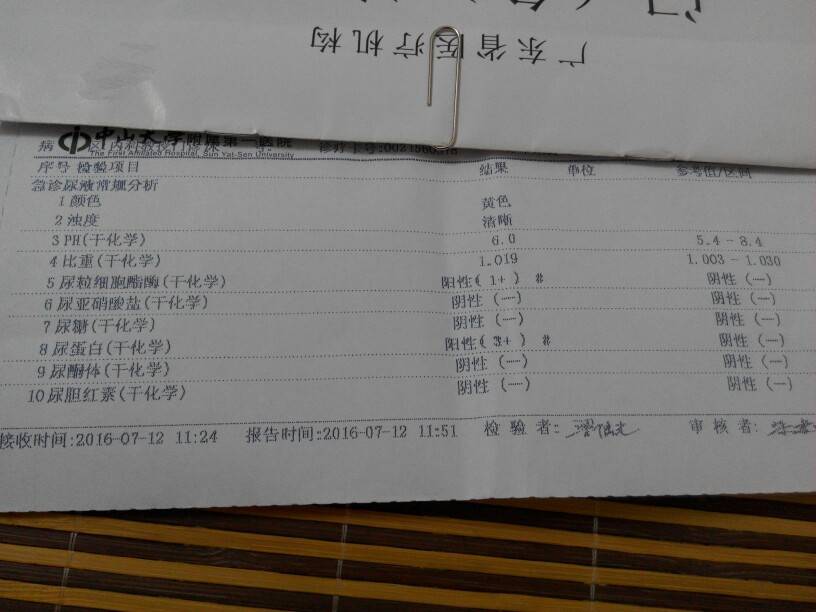 广东省医疗机构
中山大学附属第一医院
The First Affiliated Hospital, Sun Yat-Sen University
序号 检验项目 结果 单位 参考值/区间
急诊尿液常规分析
1 颜色 黄色
2 浊度 清晰
3 PH(干化学) 6.0 5.4 - 8.4
4 比重(干化学) 1.019 1.003 - 1.030
5 尿粒细胞酯酶(干化学) 阳性( 1+ ) # 阴性 (—)
6 尿亚硝酸盐(干化学) 阴性 (—) 阴性 (—)
7 尿糖(干化学) 阴性 (—) 阴性 (—)
8 尿蛋白(干化学) 阳性( 3+ ) # 阴性 (—)
9 尿酮体(干化学) 阴性 (—) 阴性 (—)
10 尿胆红素(干化学) 阴性 (—) 阴性 (—)
接收时间:2016-07-12 11:24 报告时间:2016-07-12 11:51 检 验 者: 审 核 者: